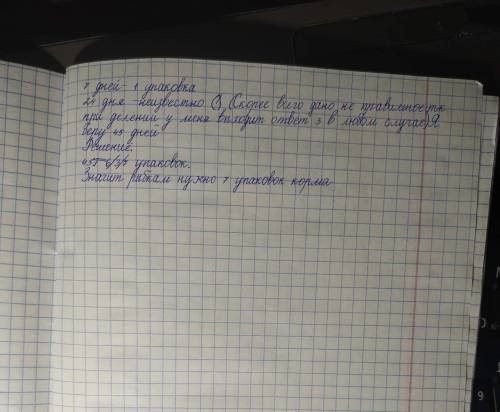 7 дней - 1 упаковка
24 дня - неизвестно (Скорее всего дано не правильно, тк
при делении у меня выходит ответ 3 в любом случае) Я
беру 45 дней
Решение:
упаковок.
Значит рыбкам нужно 7 упаковок корма
9